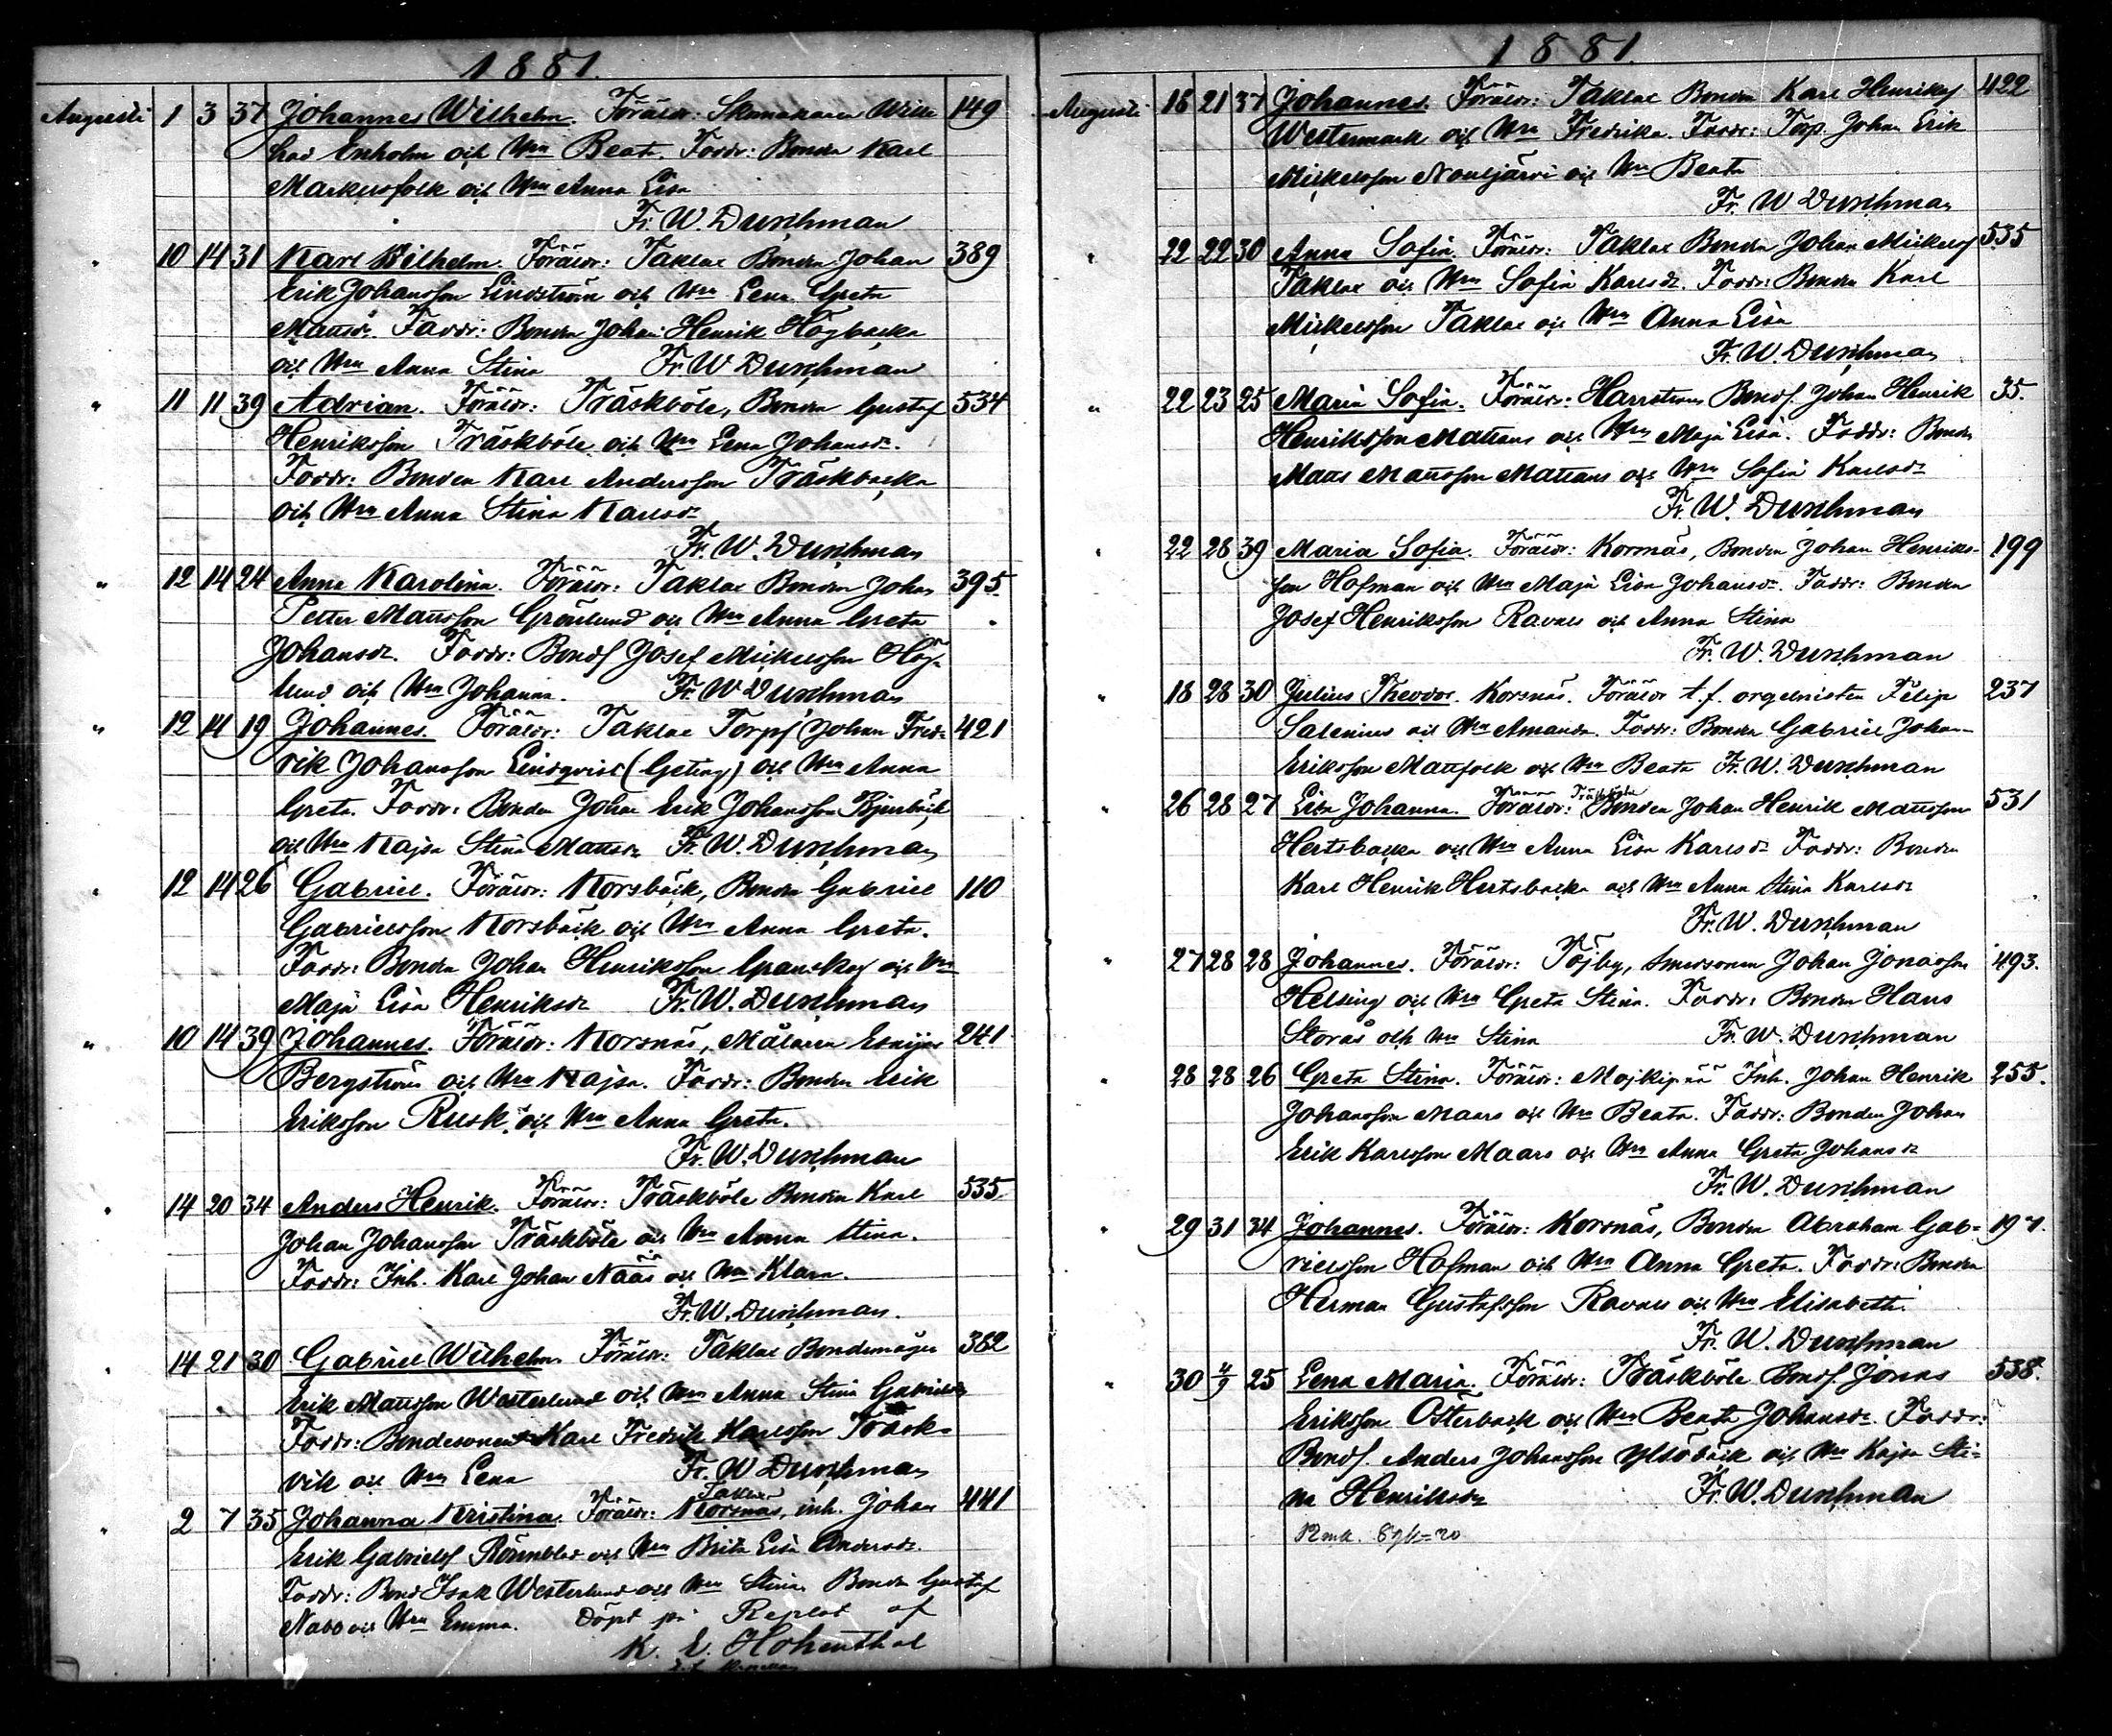 1881.
Augusti 1 3 37 Johannes Wilhelm. Föräldr: Skomakaren Wilh- 149
lad Enholm och Hru Beata. Faddr: Bonden Karl
Markusfolk och Hru Anna Lisa
Fr. W. Duschman
" 10 14 31 Karl Wilhelm. Föräldr: Taklax Bonden Johan 389
Erik Johansson Lindström och Hru Lena Greta
Mattsdr. Faddr: Bonden Johan Henrik Högbacka
och Hru Anna Stina Fr. W. Duschman
" 11 11 39 Adrian. Föräldr: Träskböle, Bonden Gustaf 534
Henriksson Träskböle och Hru Lena Johansdr.
Faddr: Bonden Karl Andersson Träskbacka
och Hru Anna Stina Karlsdr
Fr. W. Duschman
" 12 14 24 Anna Karolina. Föräldr: Taklax Bonden Johan 395
Petter Mattsson Grönlund och Hru Anna Greta
Johansdr. Faddr: Bondf Josef Mickelsson Hög-
lund och Hru Johanna. Fr. W. Duschman
" 12 14 19 Johannes. Föräldr: Taklax Torpf Johan Fred- 421
rik Johansson Lindqvist (Geting) och Hru Anna
Greta. Faddr: Bonden Johan Erik Johansson Bjurbäck
och Hru Kajsa Stina Mattsdr Fr. W. Duschman
" 12 14 26 Gabriel. Föräldr: Korsbäck, Bonden Gabriel 110
Gabrielsson Korsbäck och Hru Anna Greta.
Faddr: Bonden Johan Henriksson Granskog och Hru
Maja Lisa Henriksdr Fr. W. Duschman
" 10 14 39 Johannes. Föräldr: Korsnäs, Målaren Esaijas 241
Bergström och Hru Kajsa. Faddr: Bonden Erik
Eriksson Rusk och Hru Anna Greta.
Fr. W. Duschman
" 14 20 34 Anders Henrik. Föräldr: Träskböle Bonden Karl 535.
Johan Johansson Träskböle och Hru Anna Stina.
Faddr: Inh. Karl Johan Nääs och Hru Klara.
Fr. W. Duschman.
" 14 21 30 Gabriel Wilhelm. Föräldr: Taklax Bondemågen 382
Erik Mattsson Westerlund och Hru Anna Stina Gabrielsdr
Faddr: Bondesonen Karl Fredrik Karlsson Träsk-
vik och Hru Lena Fr. W. Duschman
Taklax
" 2 7 35 Johanna Kristina. Föräldr: Korsnäs, inh. Johan 441
Erik Gabrielsf Rönnblad och Hru Brita Lisa Andersdr.
Faddr: Bond Isak Westerlund och Hru Stina, Bonden Gustaf
Nabb och Hru Emma. Döpt på Replot af
K. E. Hohenthal
1881.
Augusti 18 21 37 Johannes. Föräldr: Taklax Bonden Karl Henriksf 422
Westermark och Hru Fredrika. Faddr: Torp. Johan Erik
Mickelsson Nouljärvi och Hru Beata
Fr. W Duschman
" 22 22 30 Anna Sofia. Föräldr: Taklax Bonden Johan Mickelsf 535
Taklax och Hru Sofia Karlsdr. Faddr: Bonden Karl
Mickelsson Taklax och Hru Anna Lisa
Fr. W. Duschman
" 22 23 25 Maria Sofia. Föräldr: Harrström Bondf. Johan Henrik 35.
Henriksson Mattans och Hru Maja Lisa. Faddr: Bonden
Matts Mattsson Mattans och Hru Sofia Karlsdr
Fr. W. Duschman
" 22 28 39 Maria Sofia. Föräldr: Korsnäs, Bonden Johan Henriks- 199
son Hofman och Hru Maja Lisa Johansdr. Faddr: Bonden
Josef Henriksson Ravals och Anna Stina
Fr. W. Duschman
" 18 28 30 Julius Theodor. Korsnäs. Föräldr t.f. orgelnisten Filip 237
Salenius och Hru Amanda. Faddr: Bonden Gabriel Johan-
Eriksson Mattfolk och Hru Beata Fr. W. Duschman
Träskböle
" 26 28 27 Lisa Johanna. Föräldr: Bonden Johan Henrik Mattsson 531
Hertsbacka och Hru Anna Lisa Karlsdr Faddr: Bonden
Karl Henrik Hertsbacka och Hru Anna Stina Karlsdr
Fr. W. Duschman
" 27 28 28 Johannes. Föräldr: Töjby, Smedsonen Johan Jonasson 493.
Helsing och Hru Greta Stina. Faddr: Bonden Hans
Storås och Hru Stina Fr. W. Duschman
" 28 28 26 Greta Stina. Föräldr: Mojkipää Inh. Johan Henrik 255.
Johansson Maars och Hru Beata. Faddr: Bonden Johan
Erik Karlsson Maars och Hru Anna Greta Johansdr
Fr. W. Duschman
" 29 31 34 Johannes. Föräldr: Korsnäs, Bonden Abraham Gab- 197.
rielsson Hofman och Hru Anna Greta. Faddr: Bonden
Herman Gustafsson Ravals och Hru Elisabeth.
Fr. W. Duschman
" 30 4/9 25 Lena Maria. Föräldr: Träskböle Bondf Jonas 538.
Eriksson Österback och Hru Beata Johansdr. Faddr:
Bondf. Anders Johansson Yltöbäck och Hru Kajsa Sti-
na Henriksdr Fr. W. Duschman
12 mk. 8 qk = 20